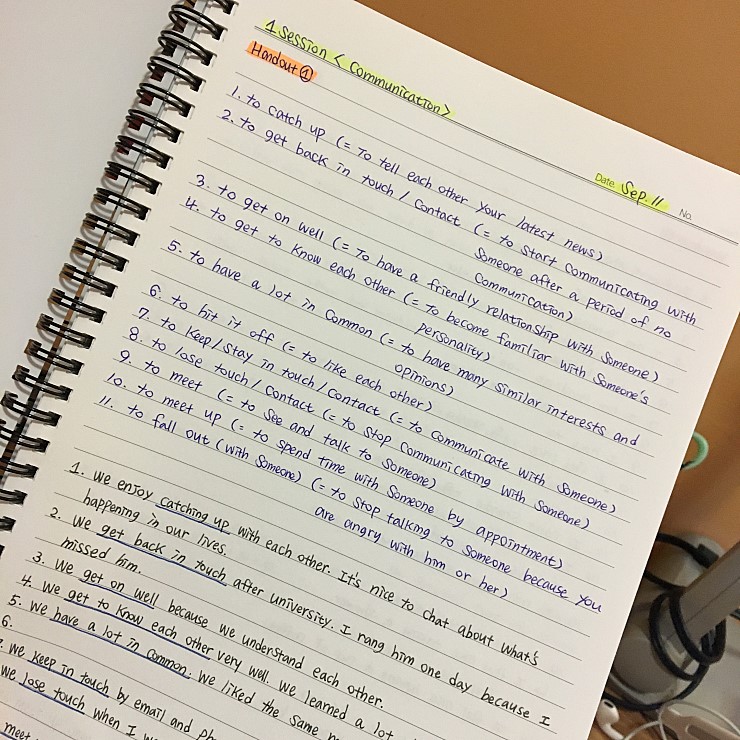 1. Session < Communication>
Handout ①
Date Sep. 11 No.
1. to catch up (= To tell each other your latest news)
2. to get back in touch / contact (= to start communicating with
someone after a period of no
communication)
3. to get on well (= To have a friendly relationship with someone)
4. to get to know each other (= To become familiar with someone's
personality)
5. to have a lot in common (= to have many similar interests and
opinions)
6. to hit it off (= to like each other)
7. to keep/stay in touch/contact (= to communicate with someone)
8. to lose touch/contact (= to stop communicating with someone)
9. to meet (= to see and talk to someone)
10. to meet up (= to spend time with someone by appointment)
11. to fall out (with someone) (= to stop talking to someone because you
are angry with him or her)
1. We enjoy catching up with each other. It's nice to chat about what's
happening in our lives.
2. We get back in touch after university. I rang him one day because I
missed him.
3. We get on well because we understand each other.
4. We get to know each other very well. We learned a lot
5. We have a lot in common. We liked the same
6.
. We keep in touch by email and ph
We lose touch when I
meet